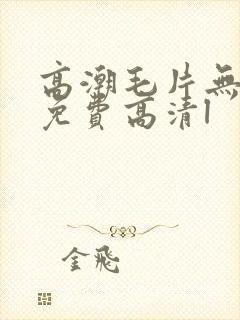 高潮毛片無
免費高清1
金飛